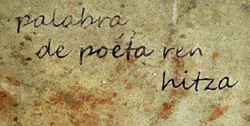 palabra
de poéta ren
hitza